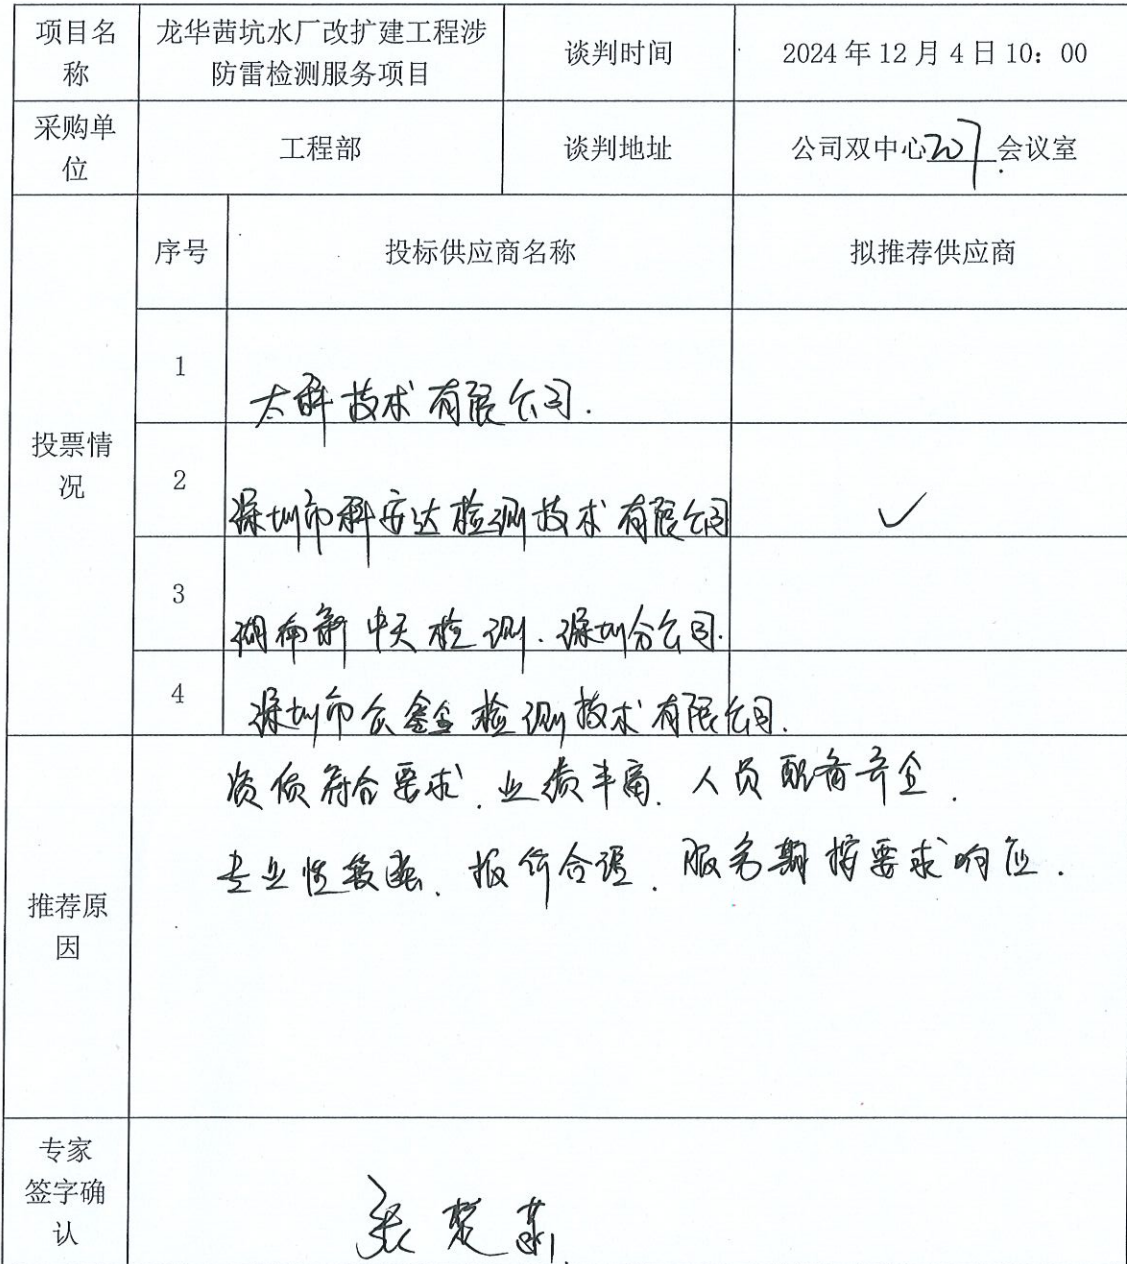 项目名称
龙华茜坑水厂改扩建工程涉
防雷检测服务项目
谈判时间
2024年12月4日10：00
采购单位
工程部
谈判地址
公司双中心207会议室
投票情况
序号
投标供应商名称
拟推荐供应商
1
太科技术有限公司.
2
深圳市科安达检测技术有限公司
✓
3
湖南新中天检测.深圳分公司.
4
深圳市众鑫检测技术有限公司.
推荐原因
资质符合要求、业绩丰富、人员配备齐全、
专业性较强、报价合理、服务期按要求响应.
专家
签字确认
张